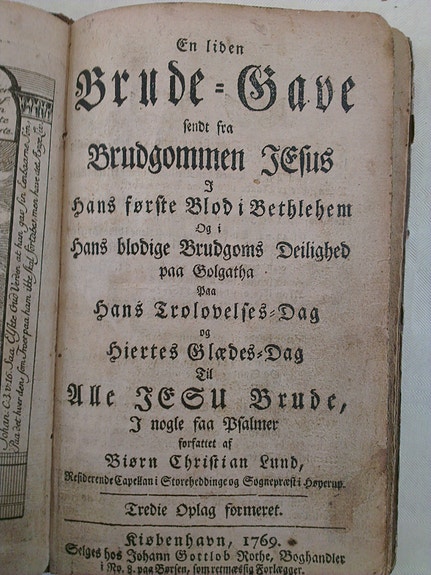 En liden
Brude-Gave
sendt fra
Brudgommen JEsus
I
Hans første Blod i Bethlehem
Og i
Hans blodige Brudgoms Deilighed
paa Golgatha
Paa
Hans Trolovelses-Dag
og
Hiertes Glædes-Dag
Til
Alle JESU Brude,
I nogle faa Psalmer
forfattet af
Biørn Christian Lund,
Residerende Capellan i Storeheddinge og Sognepræst i Høyerup.
Tredie Oplag formeret.
Kiøbenhavn, 1769.
Selges hos Johann Gottlob Rothe, Boghandler
i No. 8. paa Børsen, som retmæssig Forlægger.
Johan. C. 3. v. 16. Saa Elste Gud Verden at hand gav sin Eenbaarne Søn
Paa det hver den som Troer paa ham ikke skal fortabes men have det